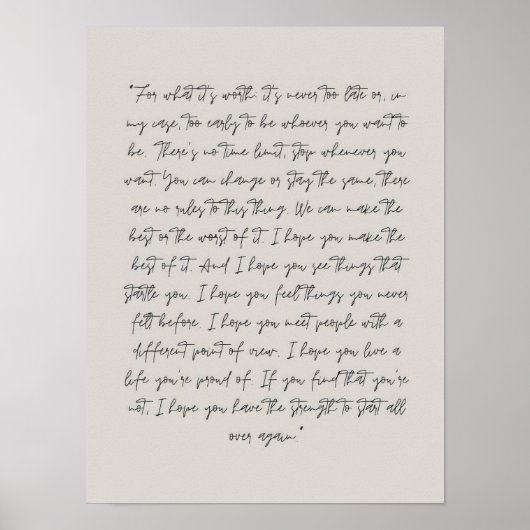 "For what it's worth: it's never too late or, in
my case, too early to be whoever you want to
be. There's no time limit, stop whenever you
want. You can change or stay the same, there
are no rules to this thing. We can make the
best or the worst of it. I hope you make the
best of it. And I hope you see things that
startle you. I hope you feel things you never
felt before. I hope you meet people with a
different point of view. I hope you live a
life you're proud of. If you find that you're
not, I hope you have the strength to start all
over again."